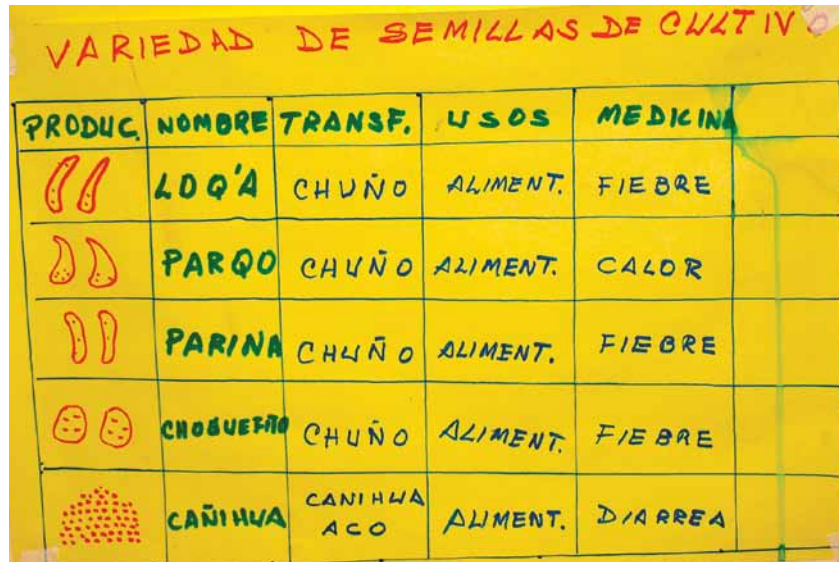 VARIEDAD DE SEMILLAS DE CULTIVO
PRODUC. NOMBRE TRANSF. USOS MEDICINA
LOQ'A CHUÑO ALIMENT. FIEBRE
PARQO CHUÑO ALIMENT. CALOR
PARINA CHUÑO ALIMENT. FIEBRE
CHUÑO ALIMENT. FIEBRE
CAÑIHUA CANIHUA ACO ALIMENT. DIARREA